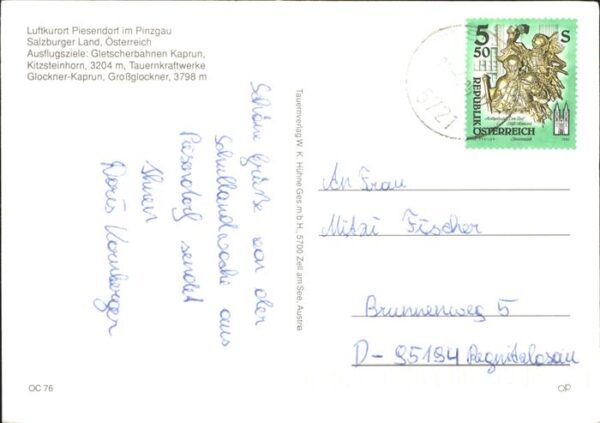 Luftkurort Piesendorf im Pinzgau
Salzburger Land, Österreich
Ausflugsziele: Gletscherbahnen Kaprun,
Kitzsteinhorn, 3204 m, Tauernkraftwerke
Glockner-Kaprun, Großglockner, 3798 m
Schöne Grüße von der
Schullandwoche aus
Piesendorf sendet
Ihnen
Doris Kornberger
Tauernverlag W. K. Hühne Ges.m.b.H., 5700 Zell am See, Austria
5721
5 50 S
REPUBLIK
ÖSTERREICH
An Frau
Mitzi Fischer
Brunnenweg 5
D-95194 Regnitzlosau
OC 76
OP